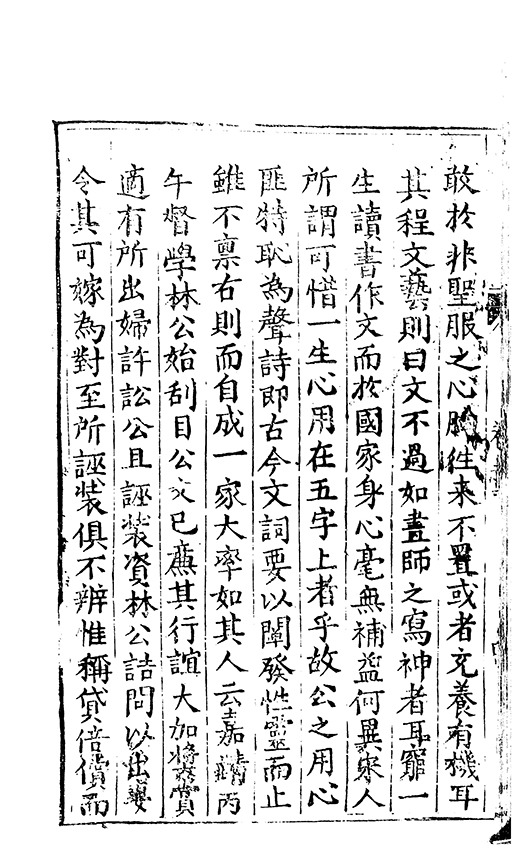 敢於非聖服之心胸往来不置或者充養有機耳
其程文藝則曰文不過如畫師之寫神者耳窮一
生讀書作文而於國家身心毫無補益何異宋人
所謂可惜一生心用在五字上者乎故公之用心
匪特恥為聲詩即古今文詞要以闡發性靈而止
雖不禀右則而自成一家大率如其人云嘉靖丙
午督學林公始刮目公文已廌其行誼大加將賞
適有所出婦許訟公且誣裝資林公詰問以出妻
令其可嫁為對至所誣裝俱不辨惟稱貸倍償而